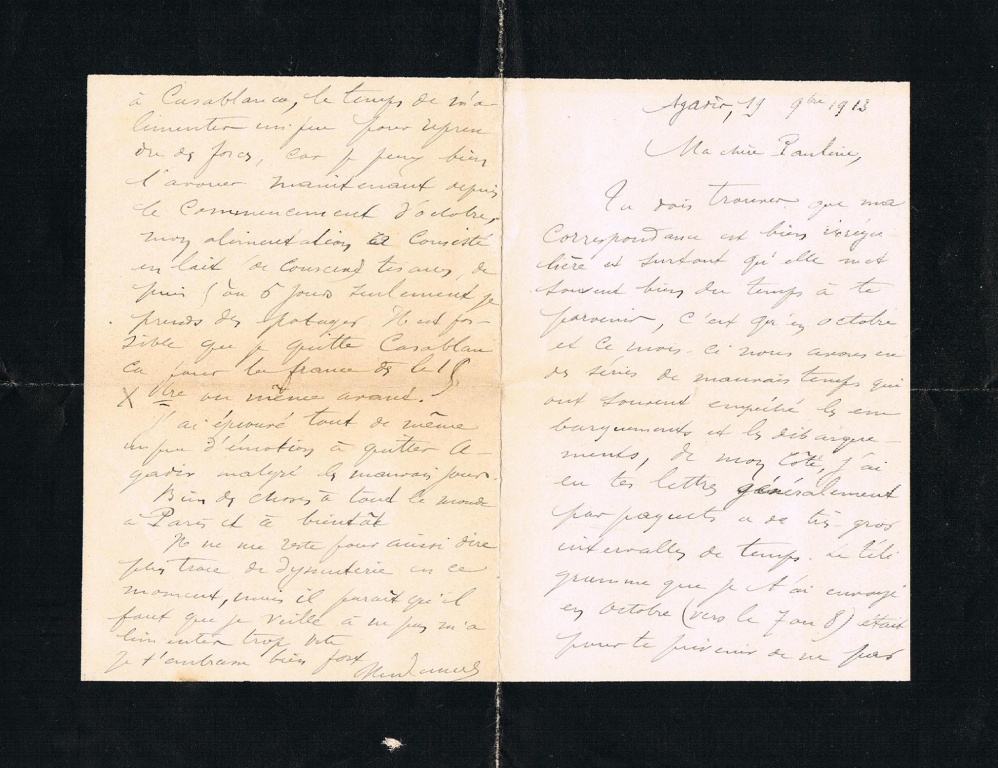 Agadir, 19 9bre 1913
Ma chère Pauline,
Tu dois trouver que ma
correspondance est bien irrégu-
lière et surtout qu'elle met
souvent bien du temps à te
parvenir, c'est qu'en octobre
et ce mois-ci nous avons eu
des séries de mauvais temps qui
ont souvent empêché les em
barquements et les débarque-
ments, de mon côté, j'ai
eu tes lettres généralement
par paquets a de très gros
intervalles de temps. Le télé
gramme que je t'ai envoyé
en octobre (vers le 7 ou 8) était
pour te prévenir de ne pas
à Casablanca, le temps de m'a-
limenter un peu pour repren
dre des forces, car je peux bien
l'avouer maintenant depuis
le commencement d'octobre,
mon alimentation a consisté
en lait de
puis 5 ou 6 jours seulement je
prends des potages. Il est pos-
sible que je quitte Casablan
ca pour la france dès le 18
Xbre ou même avant.
J'ai éprouvé tout de même
un peu d'émotion à quitter A-
gadir malgré les mauvais jours.
Bien des choses à tout le monde
a Paris et à bientôt
Il ne me reste pour ainsi dire
plus trace de dysenterie en ce
moment, mais il paraît qu'il
faut que je veille à ne pas m'a
limenter trop vite
Je t'embrasse bien fort